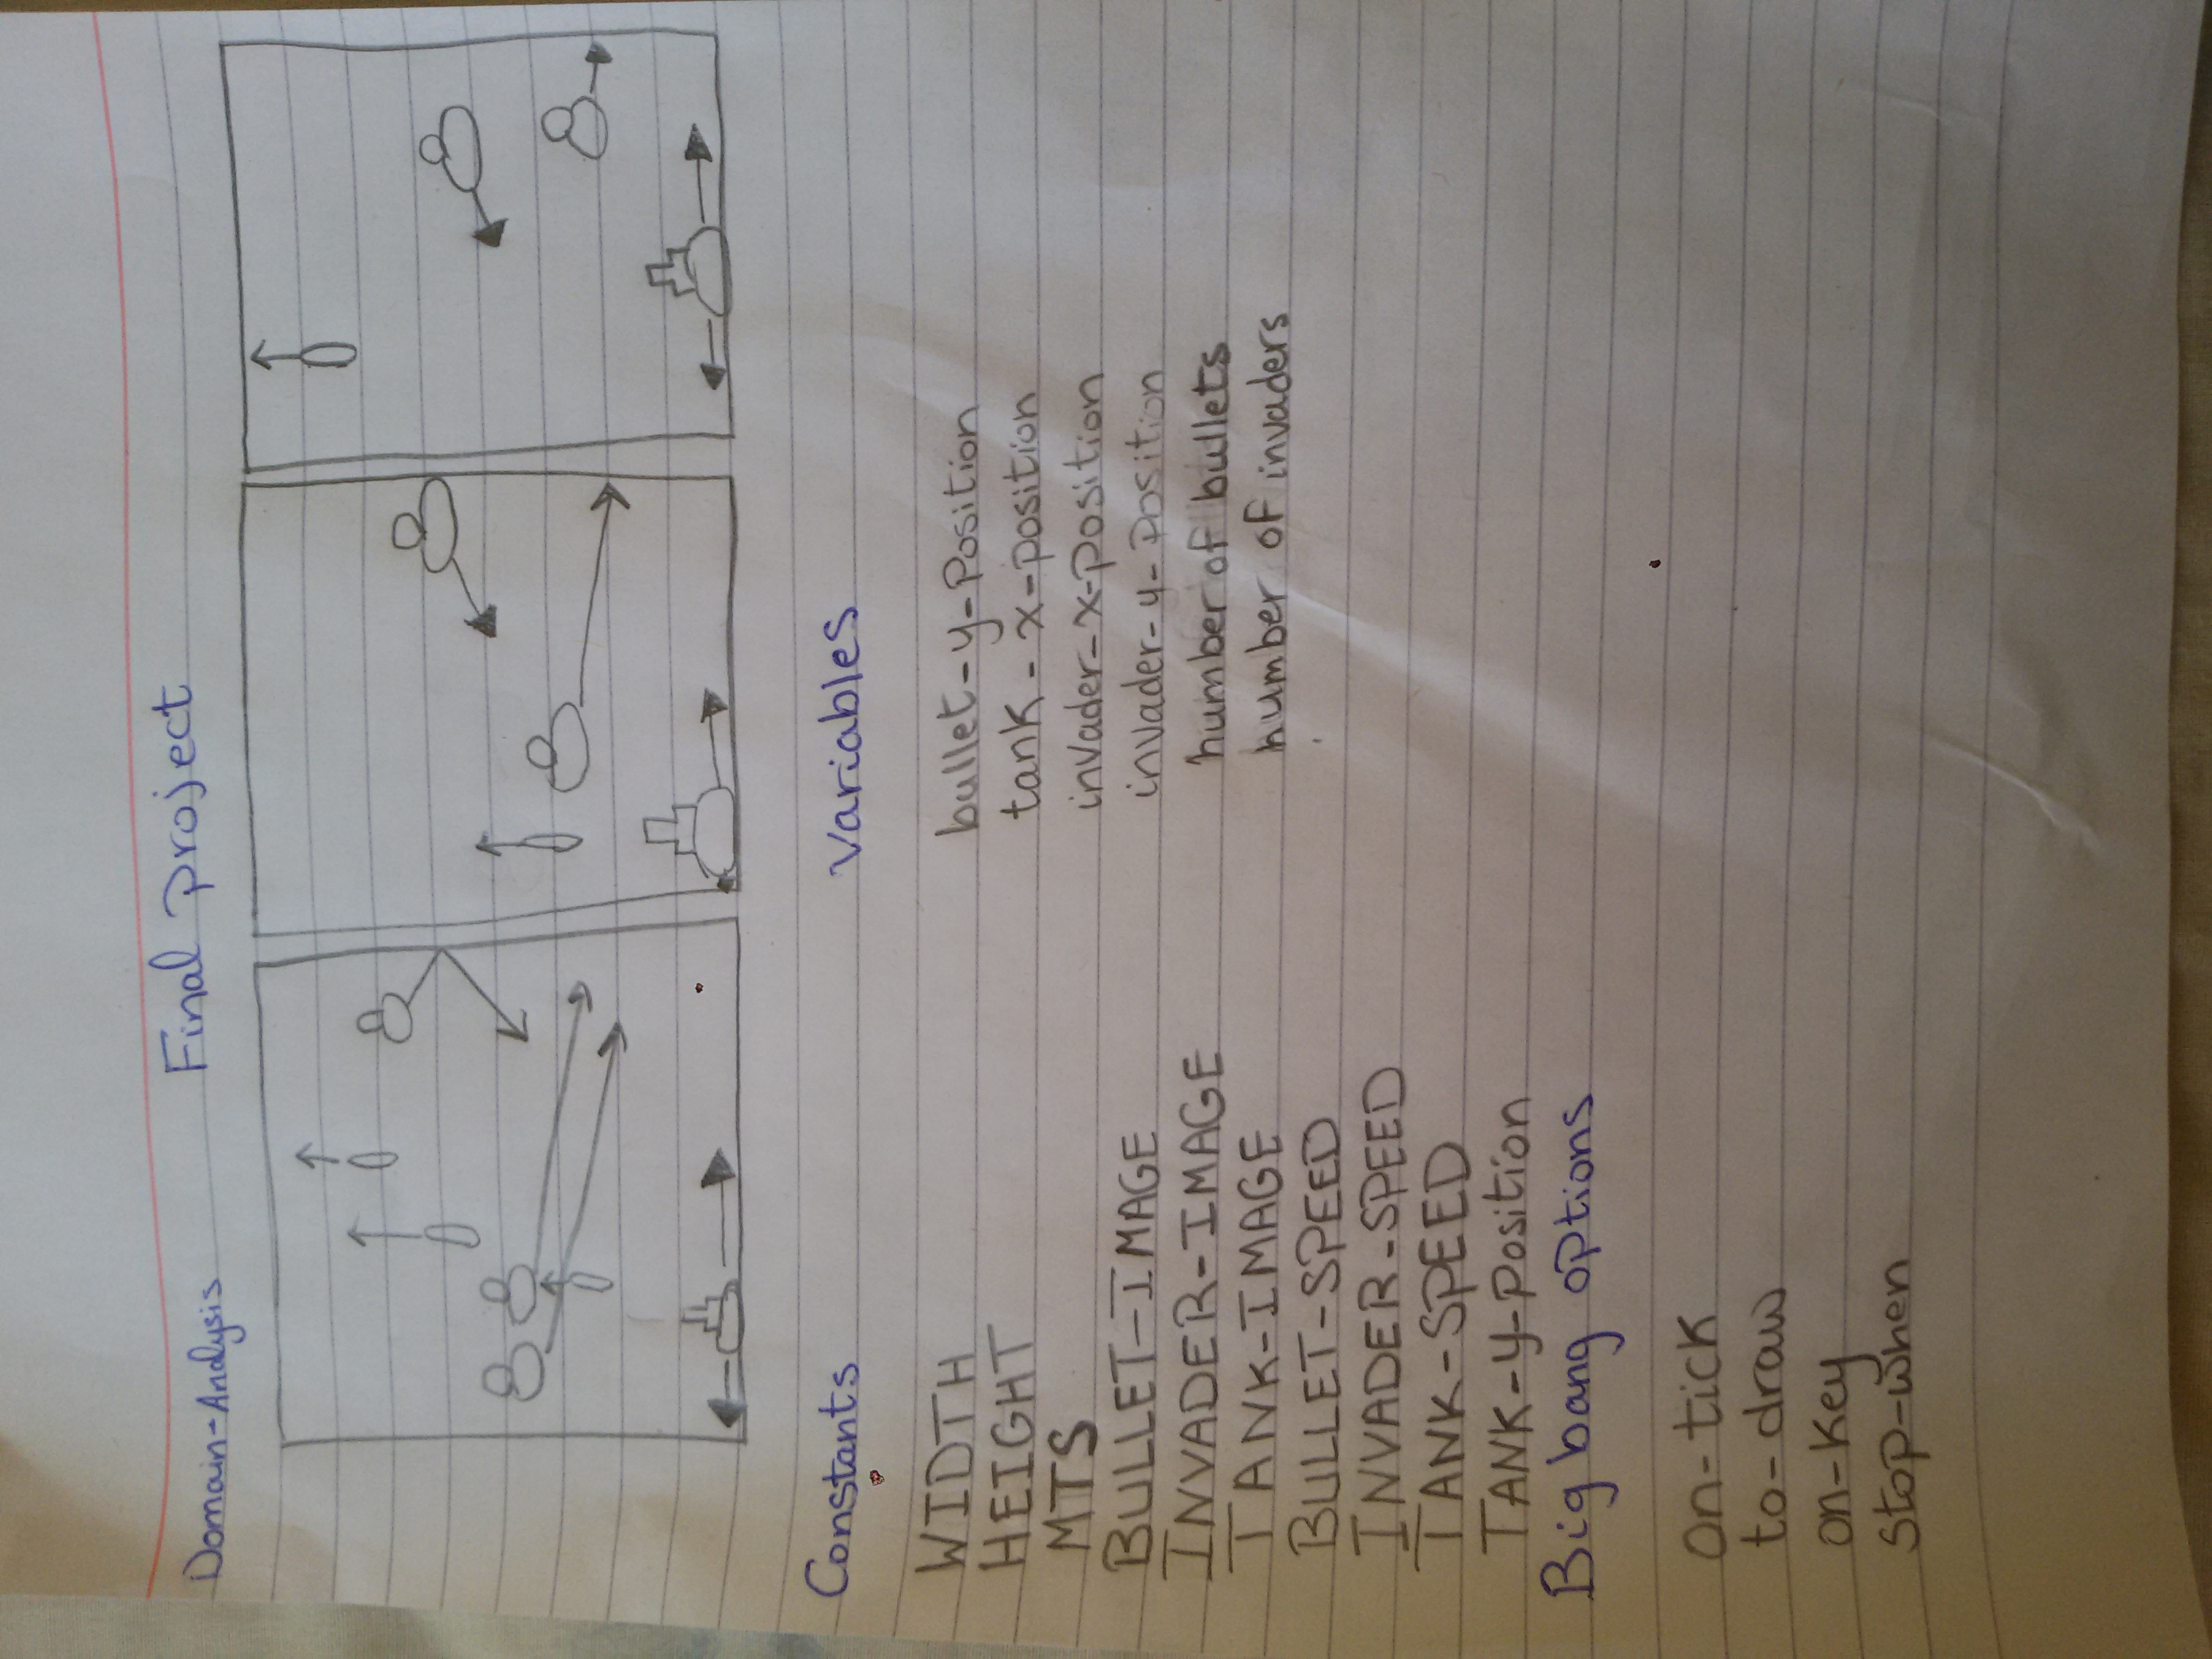 Final project
Domain-Analysis
Constants
Variables
WIDTH
HEIGHT
MTS
BULLET-IMAGE
INVADER-IMAGE
TANK-IMAGE
BULLET-SPEED
INVADER-SPEED
TANK-SPEED
TANK-y-Position
bullet-y-Position
tank-x-position
invader-x-position
invader-y-Position
number of bullets
number of invaders
Big bang options
on-tick
to-draw
on-key
stop-when